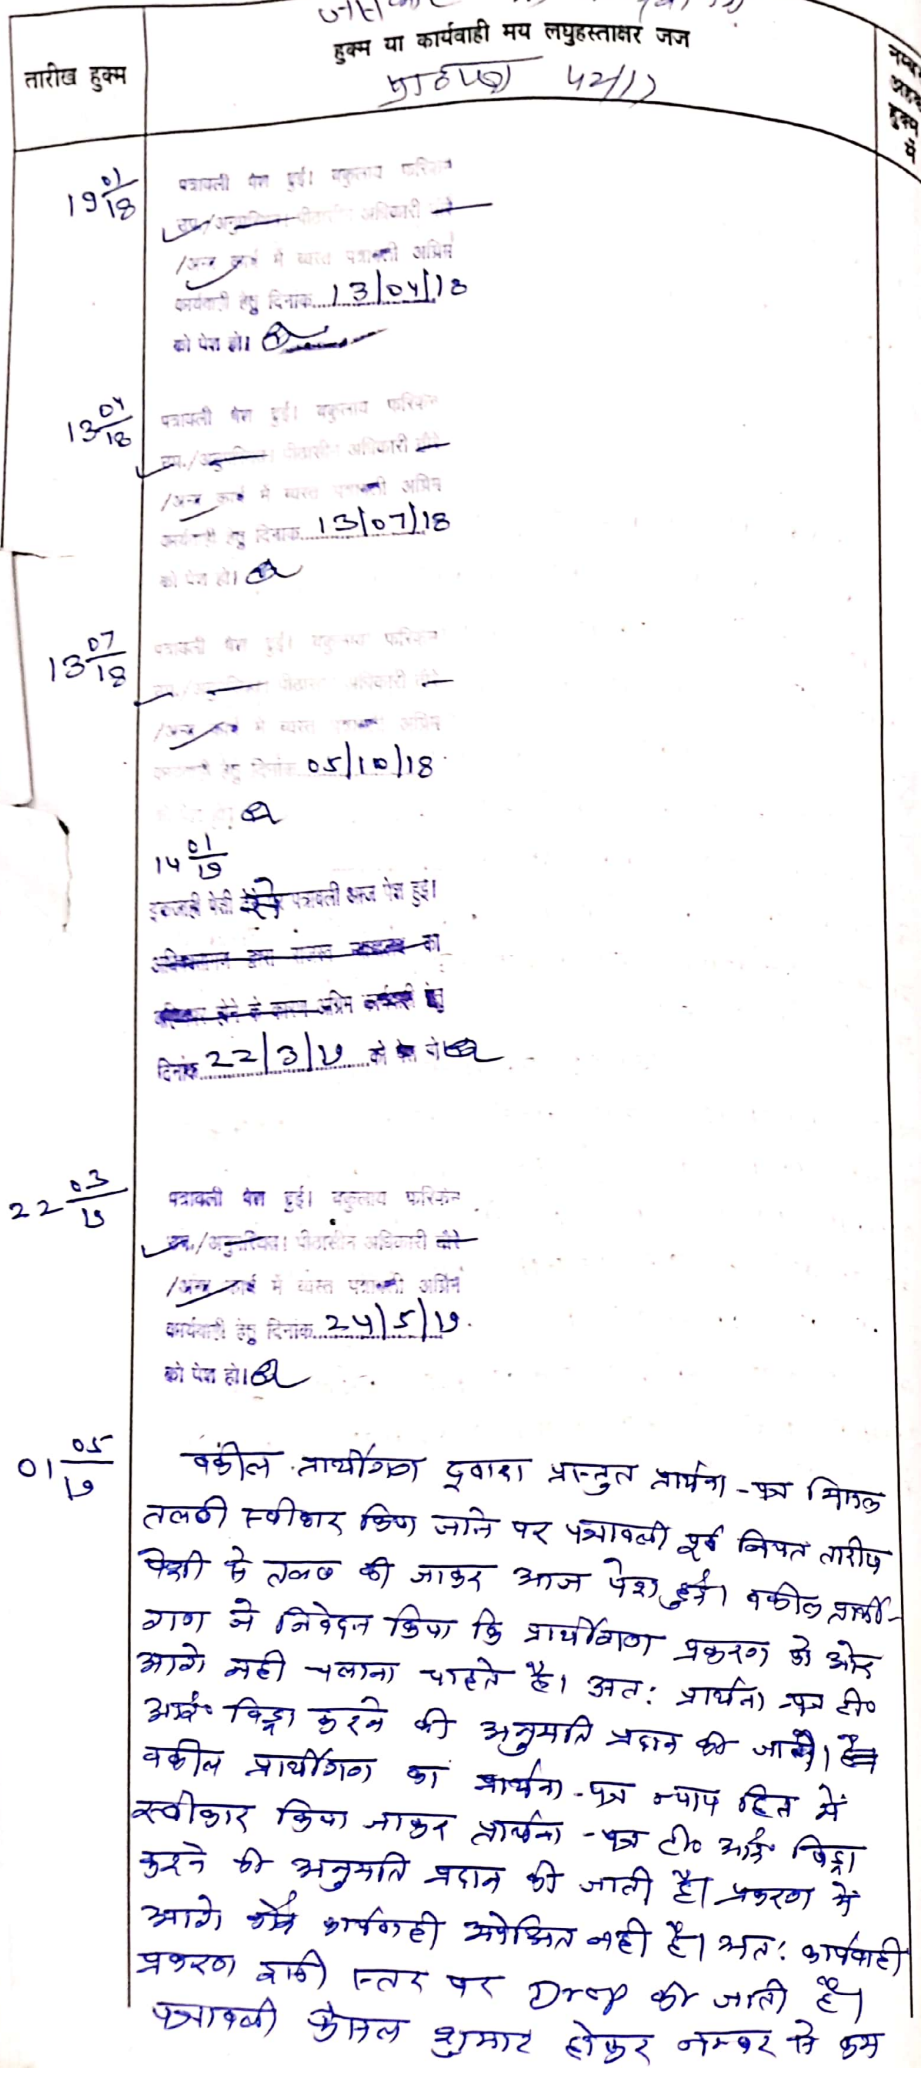 हुक्म या कार्यवाही मय लघुहस्ताक्षर जज
तारीख हुक्म
42/17
हुक्म
में
19 01/18
पत्रावली पेश हुई। वकुलाय फरिकेन
उप./अनुपस्थित। पीठासीन अधिकारी दौरे
/अन्य कार्य में व्यस्त पत्रावली अग्रिम
कार्यवाही हेतु दिनांक 13/04/18
को पेश हो।
13 04/18
पत्रावली पेश हुई। वकुलाय फरिकेन
उप./अनुपस्थित। पीठासीन अधिकारी दौरे
/अन्य कार्य में व्यस्त पत्रावली अग्रिम
कार्यवाही हेतु दिनांक 13/07/18
को पेश हो।
13 07/18
पत्रावली पेश हुई। वकुलाय फरिकेन
उप./अनुपस्थित। पीठासीन अधिकारी दौरे
/अन्य कार्य में व्यस्त पत्रावली अग्रिम
कार्यवाही हेतु दिनांक 05/10/18
को पेश हो।
14 01/19
इकजाई पेशी से पत्रावली आज पेश हुई।
का
होने के कारण अग्रिम कार्यवाही हेतु
दिनांक 22/3/19 को पेश हो।
22 03/19
पत्रावली पेश हुई। वकुलाय फरिकेन
उप./अनुपस्थित। पीठासीन अधिकारी दौरे
/अन्य कार्य में व्यस्त पत्रावली अग्रिम
कार्यवाही हेतु दिनांक 24/5/19
को पेश हो।
01 05/19
वकील प्रार्थीगण द्वारा प्रस्तुत प्रार्थना-पत्र मिसल
तलबी स्वीकार किए जाने पर पत्रावली पूर्व नियत तारीख
पेशी से तलब की जाकर आज पेश हुई। वकील प्रार्थी-
गण ने निवेदन किया कि प्रार्थीगण प्रकरण को ओर
आगे नही चलाना चाहते है। अत: प्रार्थना पत्र टी०
आई० विड्रा करने की अनुमति प्रदान की जावे।
वकील प्रार्थीगण का प्रार्थना-पत्र न्याय हित में
स्वीकार किया जाकर प्रार्थना-पत्र टी० आई० विड्रा
करने की अनुमति प्रदान की जाती है। प्रकरण में
आगे कोई कार्यवाही अपेक्षित नही है। अत: कार्यवाही
प्रकरण इसी स्तर पर Drop की जाती है।
पत्रावली फैसल शुमार होकर नम्बर से कम